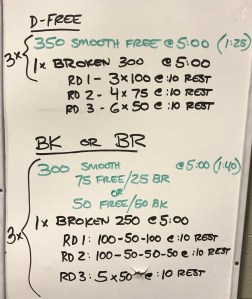 D-FREE
3x
350 SMOOTH FREE @ 5:00 (1:25)
1x BROKEN 300 @ 5:00
RD 1 - 3x100 @ :10 REST
RD 2 - 4x75 @ :10 REST
RD 3 - 6x50 @ :10 REST
BK OR BR
3x
300 SMOOTH @ 5:00 (1:40)
75 FREE/25 BR
OR
50 FREE/50 BK
1x BROKEN 250 @ 5:00
RD 1: 100-50-100 @ :10 REST
RD 2: 100-50-50-50 @ :10 REST
RD 3: 5x50 @ :10 REST